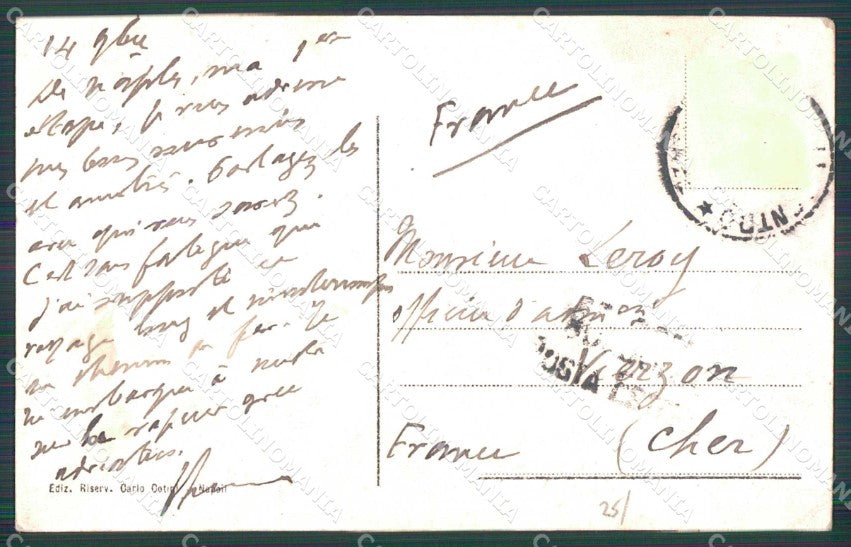 14 9bre
De Naples, ma 1ère
étape, je vous adresse
mes bons souvenirs
et amitiés. Partagez les
avec qui vous savez.
C'est sans fatigue que
j'ai supporté ce
voyage long et
en chemin de fer. Je
m'embarque à
sur le vapeur grec

Ediz. Riserv. Carlo Napoli
France
Monsieur Leroy
officier d'admi
Vierzon
(Cher)
France
25/
NTRO
POSTA
CARTOLINOMANIA